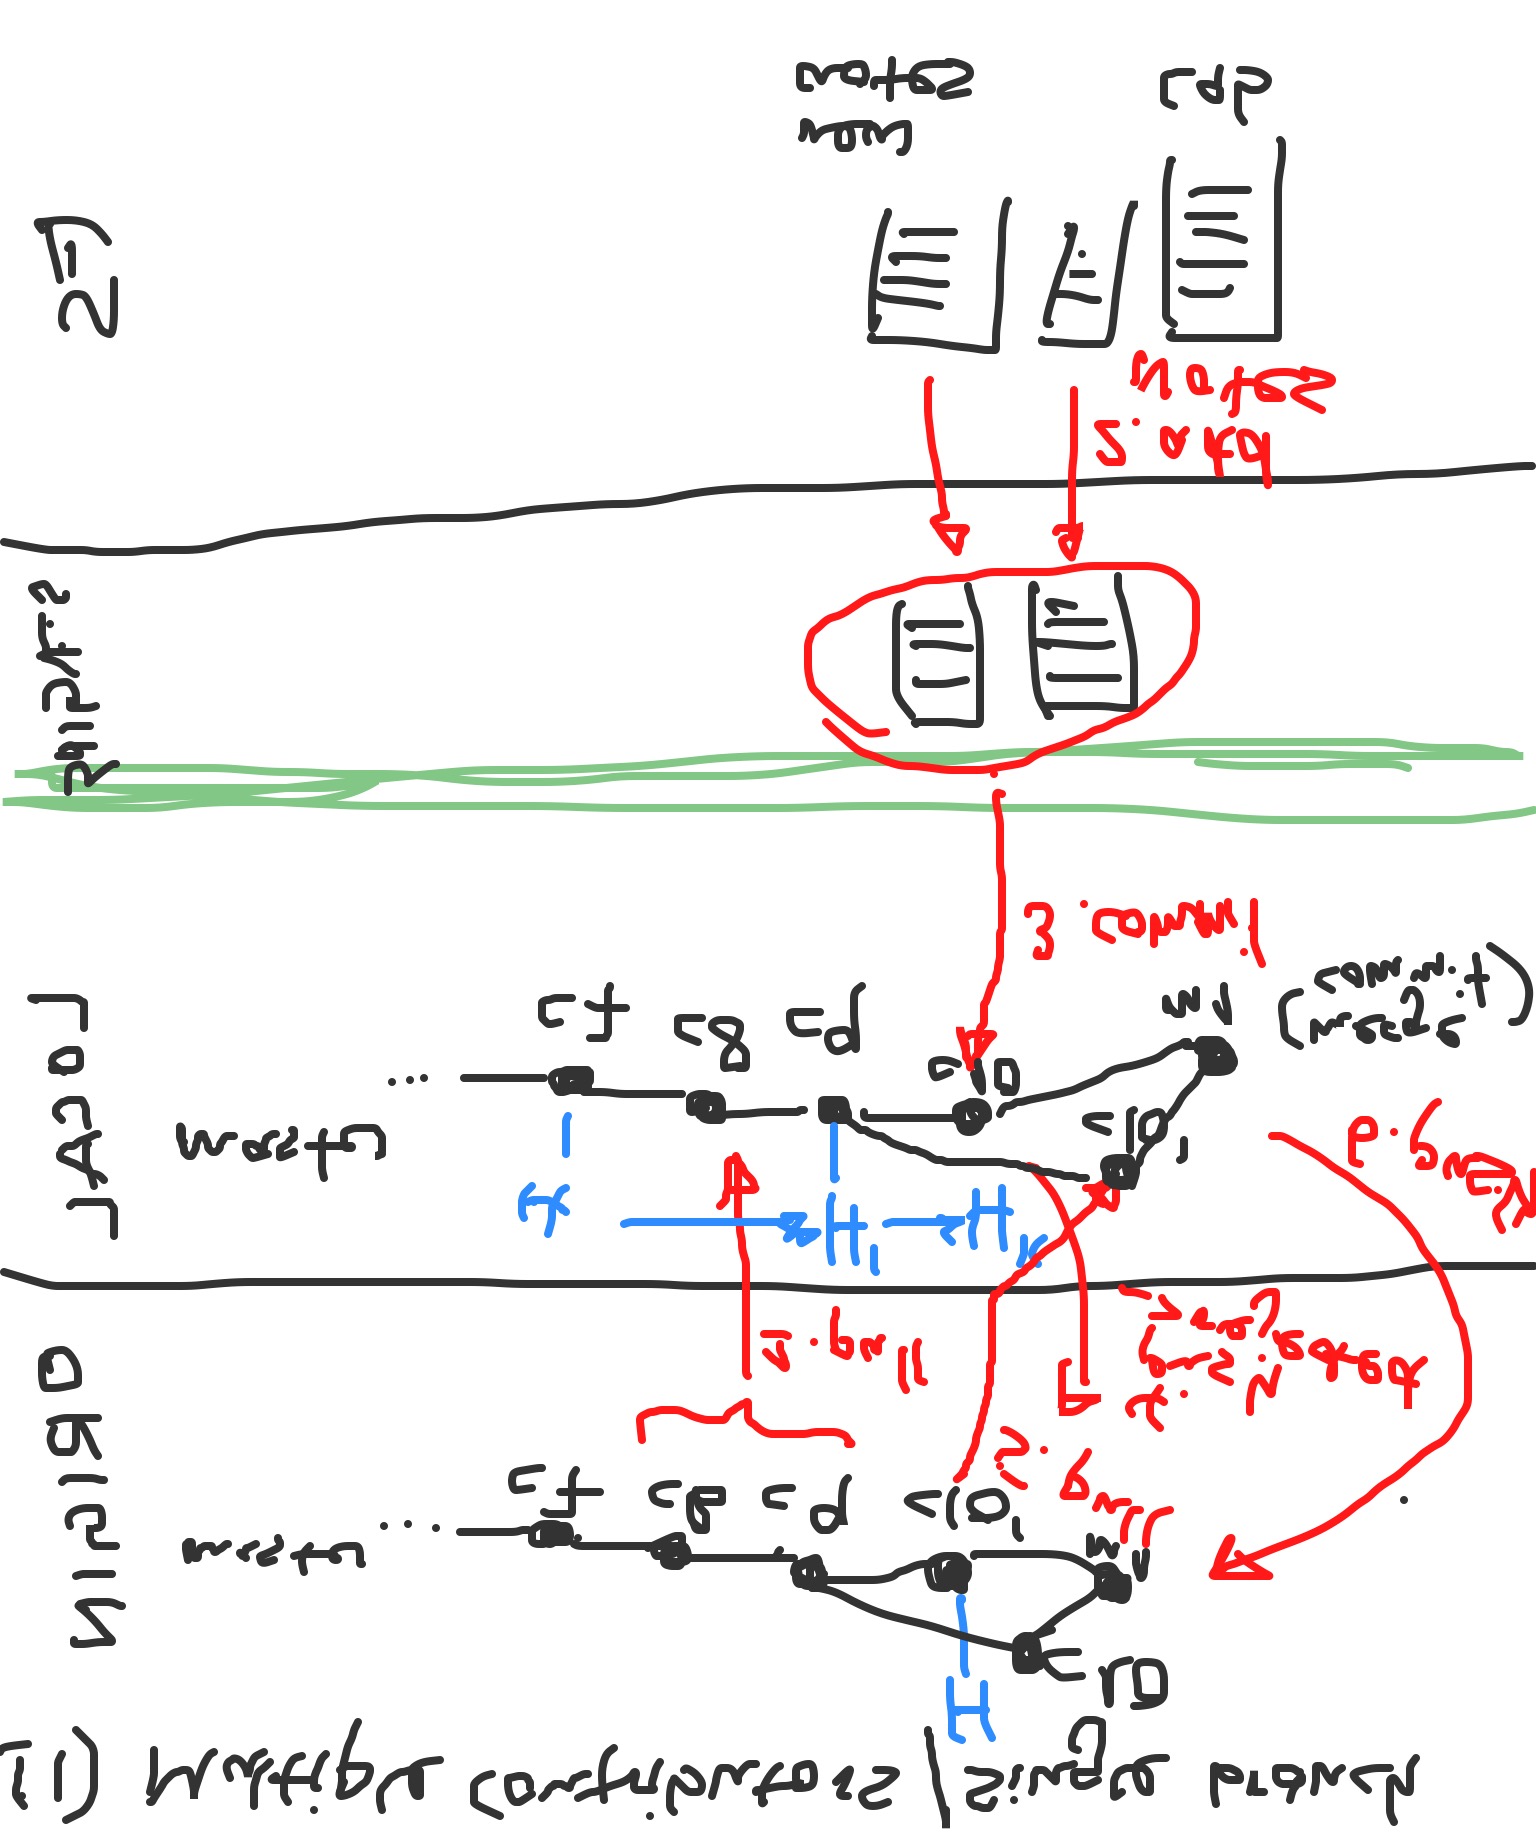 [1) Multiple Contributors / Single branch
H
c10
ORIGIN
master ...
m1
c7 c8 c9 c10'
5. pull
4. push
→ rejected
1. pull
LOCAL
H H' H''
master
...
c10'
c10
c7 c8 c9
m1 (merge
commit)
6. push
3. commit
STAGING
2. add
notes
FS
new
notes